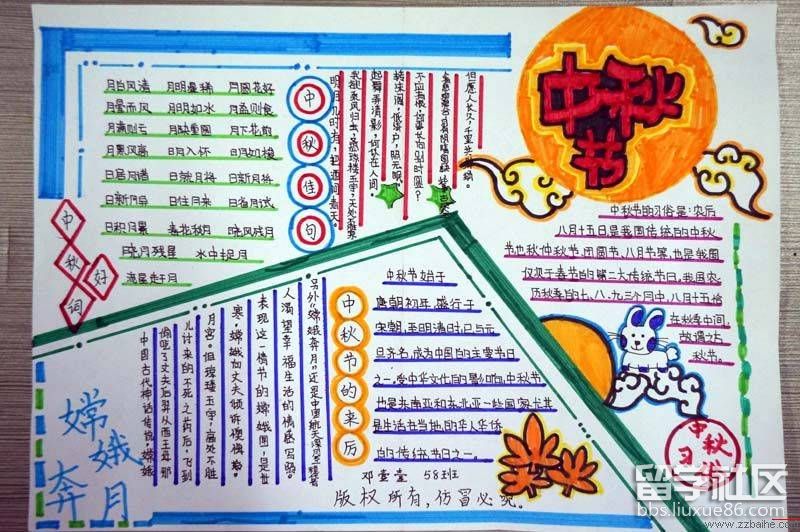 中秋节
月白风清 月明星稀 月圆花好
月晕而风 月明如水 月盈则食
月满则亏 月缺重圆 月下花前
月黑风高 明月入怀 日月如梭
日居月诸 日就月将 日新月将
日新月异 日往月来 日省月试
日积月累 春花秋月 晓风残月
晓月残星 水中捉月
流星赶月
中秋好词
中秋佳句
明月几时有,把酒问青天。
起舞弄清影,何似在人间。
转朱阁,低绮户,照无眠。
不应有恨,何事长向别时圆?
但愿人长久,千里共婵娟。
中秋节的习俗是:农历
八月十五日是我国传统的中秋
节也称仲秋节,团圆节,八月节等,也是我国
仅次于春节的第二大传统节日,我国农
历秋季为七、八、九三个月中,八月十五恰
在秋季中间
故谓之
秋节。
中秋节的来历
中秋节始于
唐朝初年,盛行于
宋朝,至明清时已与元
旦齐名,成为中国的主要节日
之一,受中华文化的影响,中秋节
也是东南亚和东北亚一些国家尤其
是生活在当地的华人华侨
的传统节日之一。
嫦娥奔月
中国古代神话传说,嫦娥
偷吃了丈夫后羿从西王母那
儿讨来的不死之药后,飞到
月宫。但琼楼玉宇,高处不胜
寒,嫦娥向丈夫倾诉懊悔。
表现这一情节的嫦娥图,是世
人渴望幸福生活的情感写照。
中秋习俗
邓莹莹 58班
版权所有,仿冒必究。
留学社区
bbs.liuxue86.com
www.zzbaihe.com